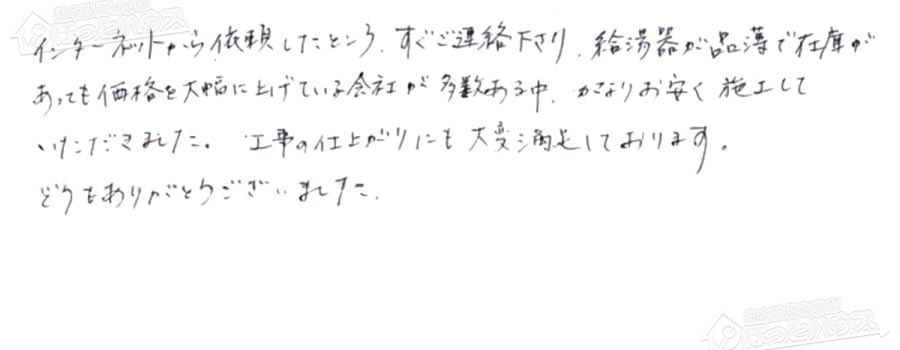 インターネットから依頼したところ、すぐご連絡下さり、給湯器が品薄で在庫が
あっても価格を大幅に上げている会社が多数ある中、かなりお安く施工して
いただきました。工事の仕上がりにも大変満足しております。
どうもありがとうございました。
住宅設備専門店
ほっとハウス
住宅設備専門店
ほっとハウス